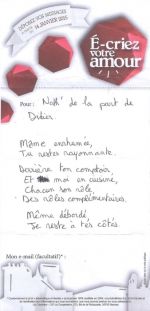 DÉPOSEZ VOS MESSAGES
14 JANVIER 2015
É-criez
votre
amour
Pour : Nath' de la part de
Didier.
Même enrhumée,
Tu restes rayonnante.
Derrière ton comptoir,
Et moi en cuisine,
Chacun son rôle,
Des rôles complémentaires.
Même débordé,
Je reste à tes côtés.
Mon e-mail (facultatif)* :